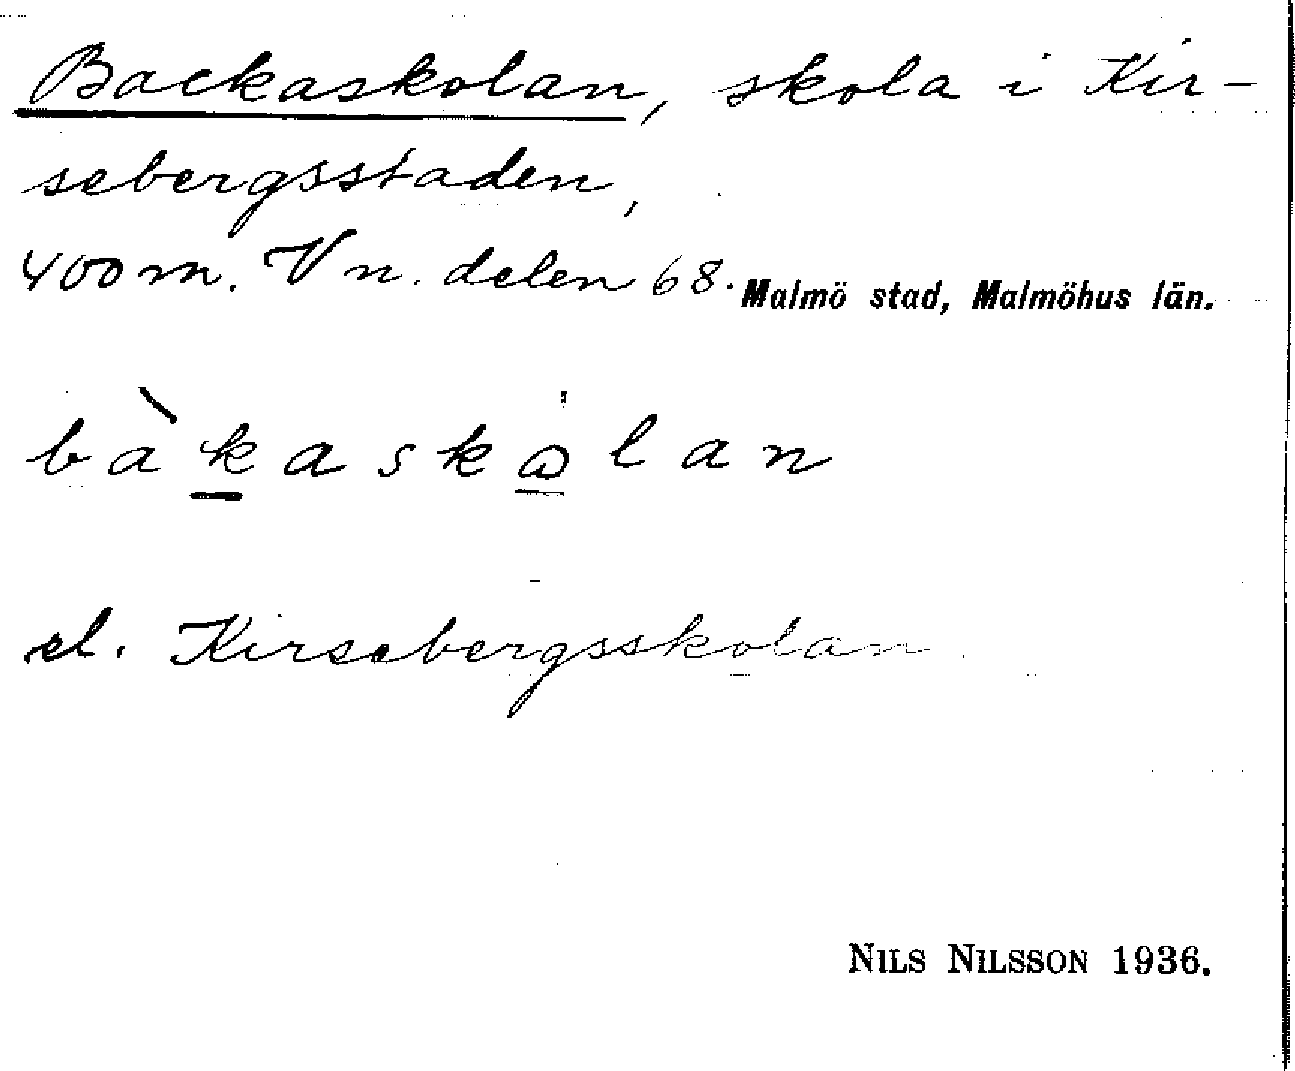 Backaskolan, skola i Kir-
sebergsstaden,
400 m. V n. delen 68. Malmö stad, Malmöhus län.
bàkaskålan
el. Kirsebergsskolan
NILS NILSSON 1936.